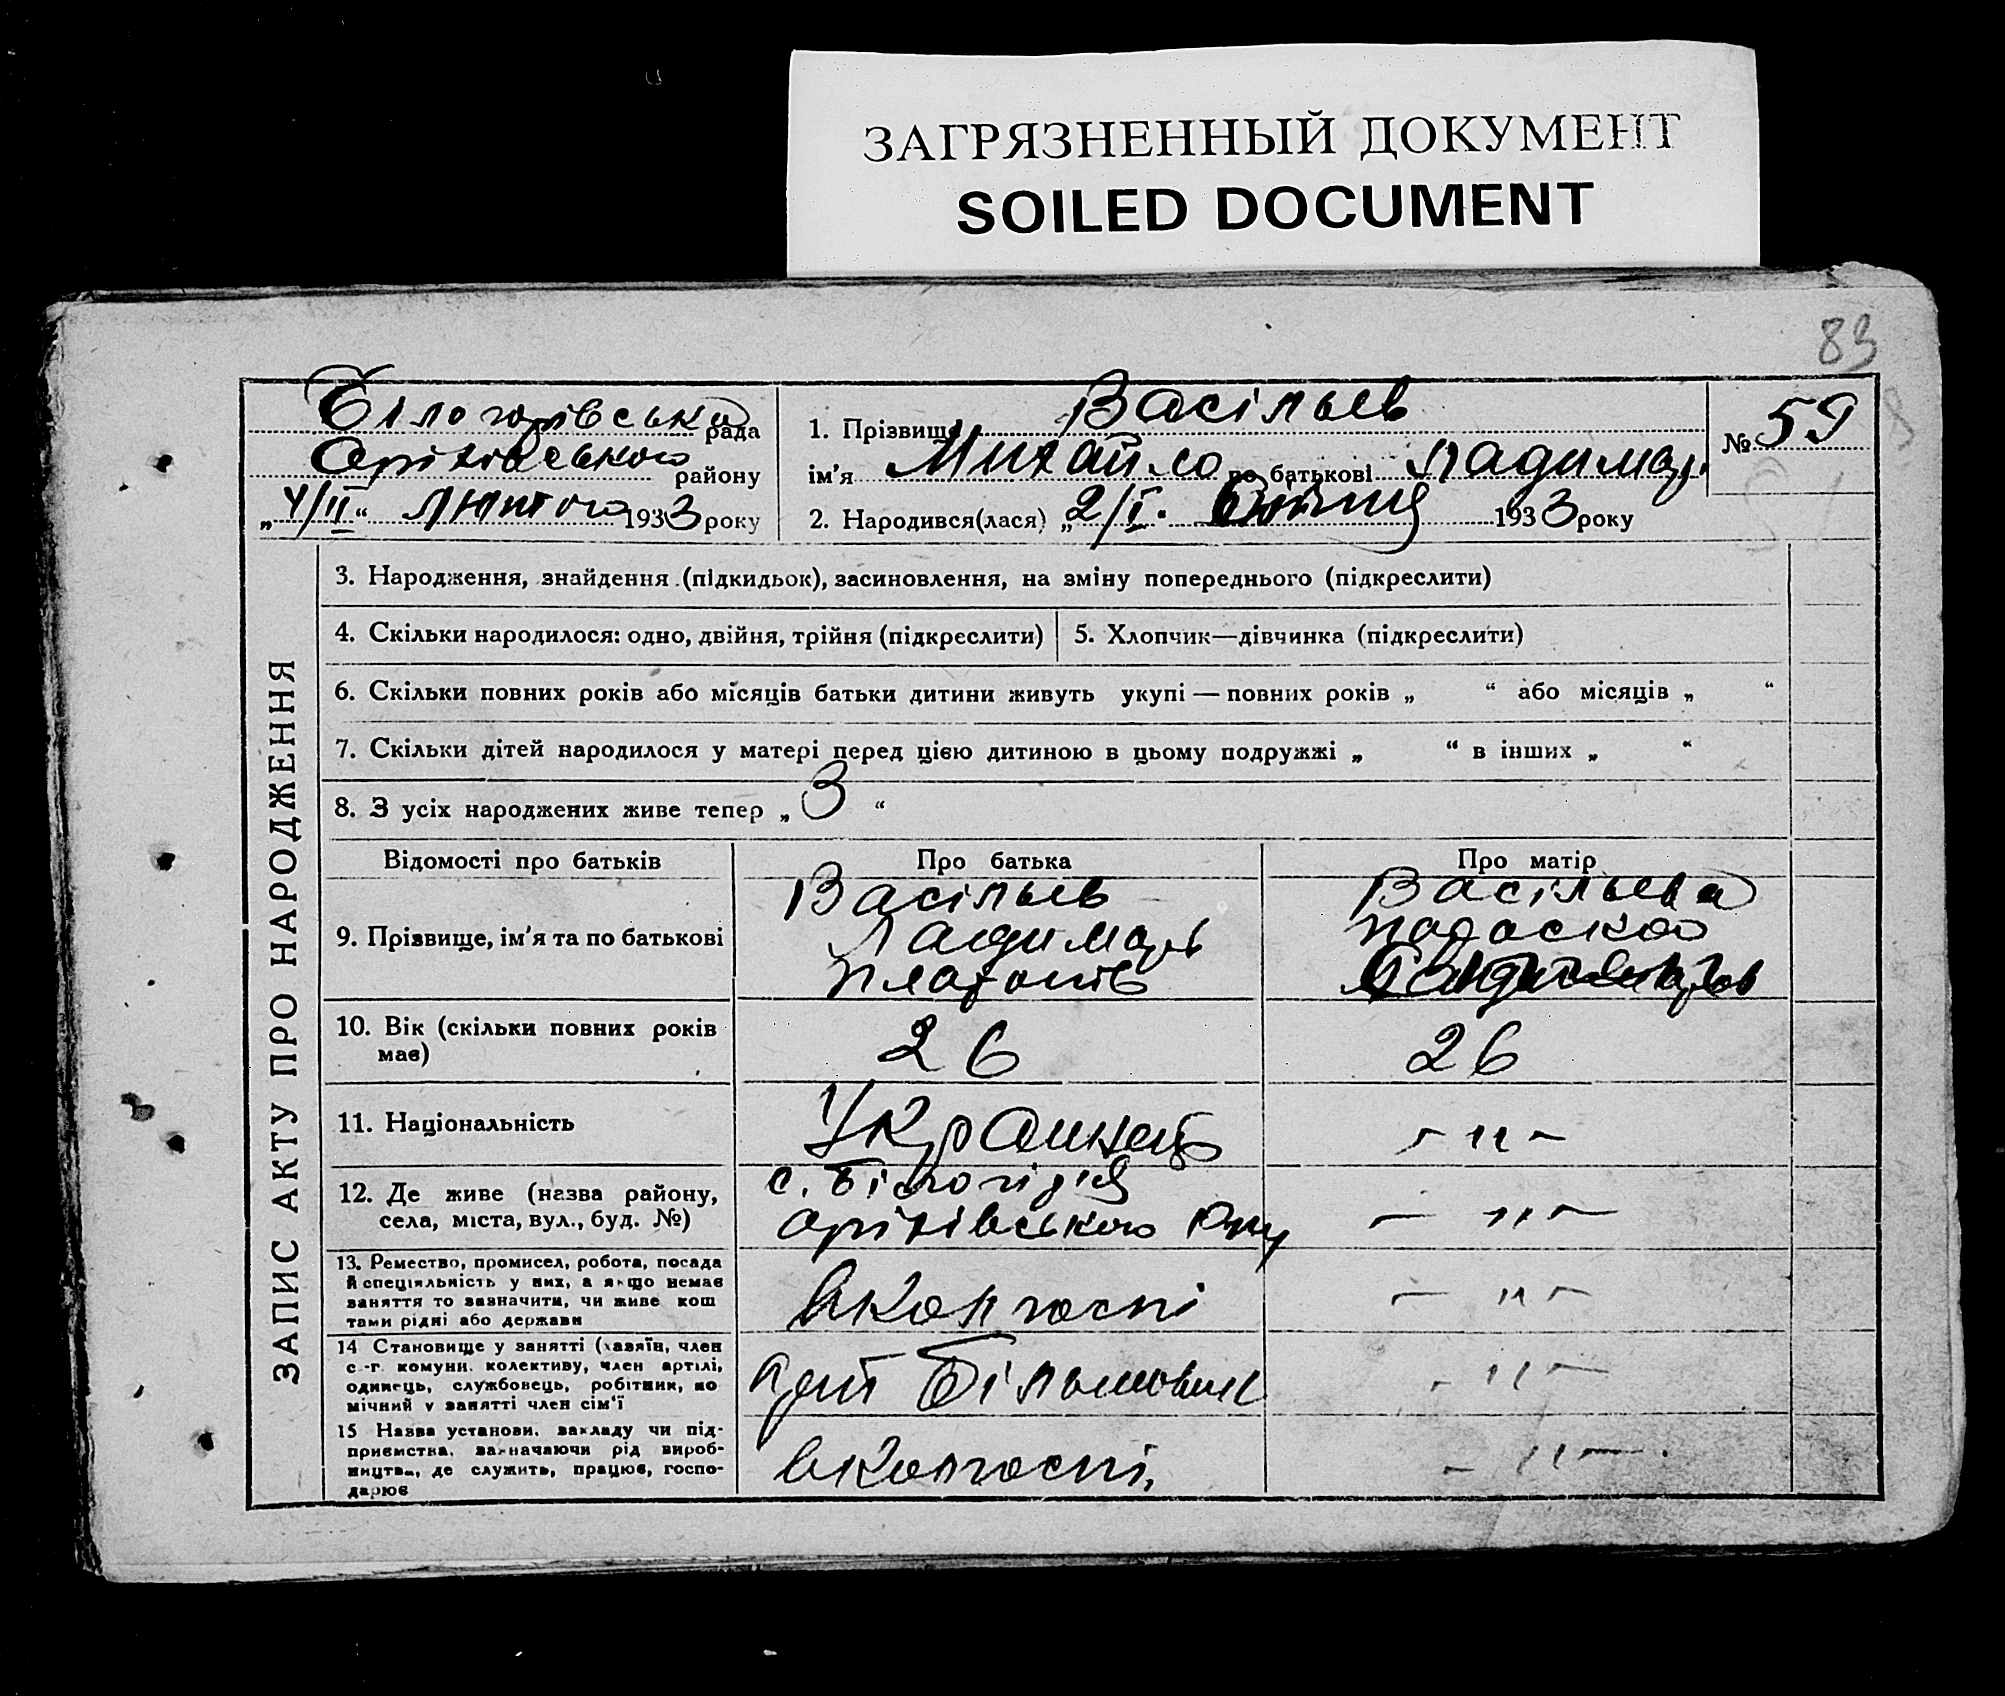 ЗАГРЯЗНЕННЫЙ ДОКУМЕНТ
SOILED DOCUMENT
83
Білогорівська рада
Оріхівського району
„4/II“ Лютого 1933 року
1. Прізвище Васільєв
ім’я Михайло по батькові Ладимир.
2. Народився(лася) „2/I. 1933 року
№ 59
ЗАПИС АКТУ ПРО НАРОДЖЕННЯ
3. Народження, знайдення (підкидьок), засиновлення, на зміну попереднього (підкреслити)
4. Скільки народилося: одно, двійня, трійня (підкреслити)
5. Хлопчик—дівчинка (підкреслити)
6. Скільки повних років або місяців батьки дитини живуть укупі — повних років „ “ або місяців „ “
7. Скільки дітей народилося у матері перед цією дитиною в цьому подружжі „ “ в інших „ “
8. З усіх народжених живе тепер „ 3 “
Відомості про батьків
Про батька
Про матір
9. Прізвище, ім’я та по батькові
Васільєв
Ладимир
Платонів
Васільєва
10. Вік (скільки повних років
має)
26
26
11. Національність
Украинець
- 11 -
12. Де живе (назва району,
села, міста, вул., буд. №)
с. Білогірія
Оріхівського р-ну
- 11 -
13. Ремество, промисел, робота, посада
й спеціяльність у них, а якщо немає
заняття то зазначити, чи живе кош
тами рідні або держави
вколгоспі
- 11 -
14 Становище у занятті (хазяїн, член
с.-г. комуни, колективу, член артілі,
одинець, службовець, робітник, по
мічний у занятті член сім’ї
- 11 -
15 Назва установи, закладу чи під-
приємства, зазначаючи рід вироб-
ництва, де служить, працює, госпо-
дарює
вколгоспі,
- 11 -